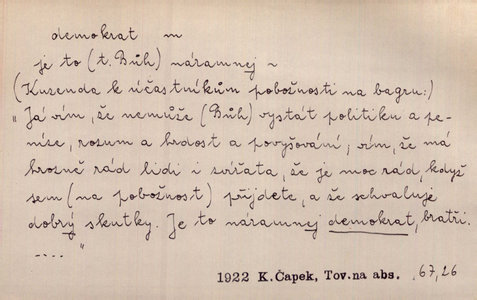 demokrat m
je to (t. Bůh) náramnej ~
(Kuzenda k účastníkům pobožnosti na bagru:)
„Já vím, že nemůže (Bůh) vystát politiku a pe-
níze, rozum a hrdost a povyšování; vím, že má
hrozně rád lidi i zvířata, že je moc rád, když
sem (na pobožnost) přijdete, a že schvaluje
dobrý skutky. Je to náramnej demokrat, bratři.
...."
1922 K. Čapek, Tov. na abs. , 67, 26